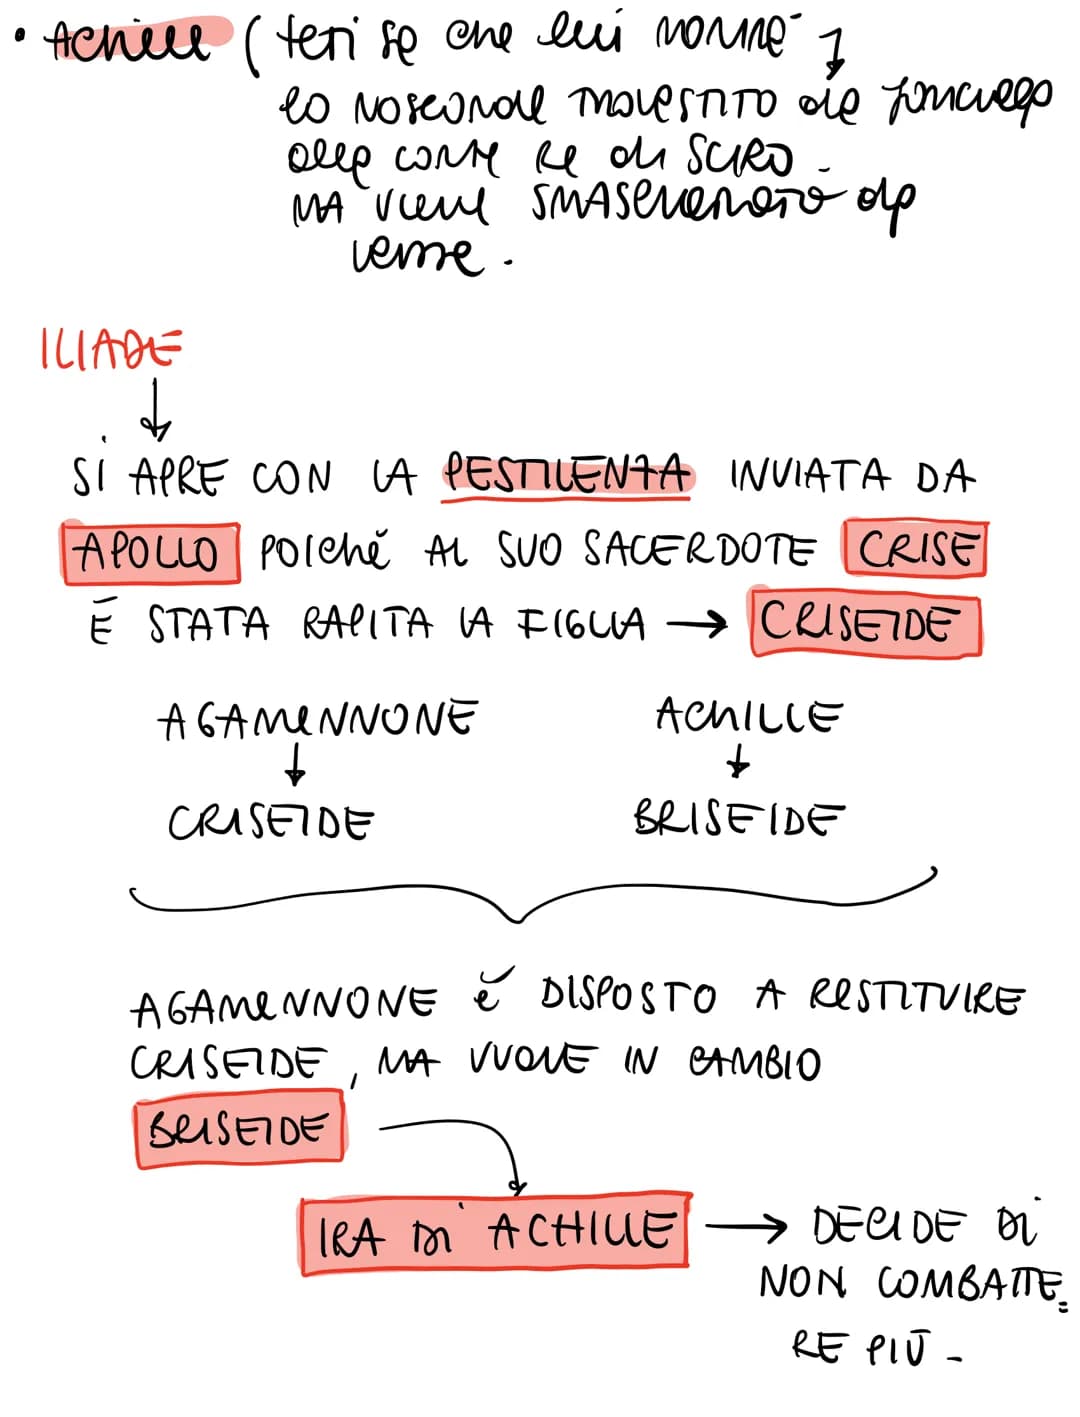 • Achille (teti sa che lui morirà
lo nasconde travestito da fanciulla
alla corte re di SCIRO.
MA viene SMASCHERATO da
ILIADE
↓
SI APRE CON LA PESTILENZA INVIATA DA
APOLLO POICHÉ AL SUO SACERDOTE CRISE
È STATA RAPITA LA FIGLIA → CRISEIDE
AGAMENNONE ACHILLE
↓ ↓
CRISEIDE BRISEIDE
AGAMENNONE È DISPOSTO A RESTITUIRE
CRISEIDE, MA VUOLE IN CAMBIO
BRISEIDE
IRA DI ACHILLE → DECIDE DI
NON COMBATTE=
RE PIÙ -